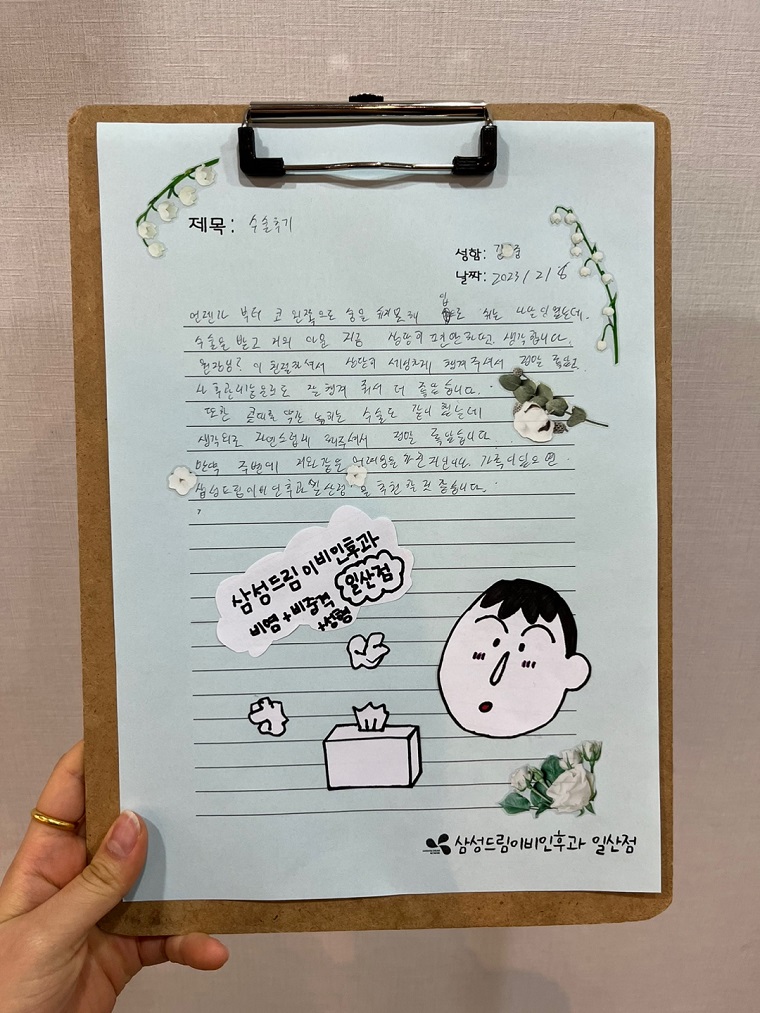 제목: 수술후기
성함: 김 중
날짜: 2023/2/8
언젠가 부터 코 왼쪽으로 숨을 쉬지못해 입으로 쉬는 나날이 였는데.
수술을 받고 거의 아문 지금 상당히 편안하다고 생각합니다.
원장님? 이 친절하셔서 상당히 세심하게 챙겨주셔서 정말 좋았고
사후관리등으로도 잘 챙겨 줘서 더 좋았습니다.
또한 콧대를 약간 높히는 수술도 같이 했는데
생각외로 자연스럽게 해주셔서 정말 좋았습니다
만약 주변에 저와 같은 어려움을 가진 지인이나. 가족이 있으면
삼성드림이비인후과 일산점 을 추천 할 것 같습니다.
삼성드림이비인후과
일산점
비염+비중격
+성형
삼성드림이비인후과 일산점